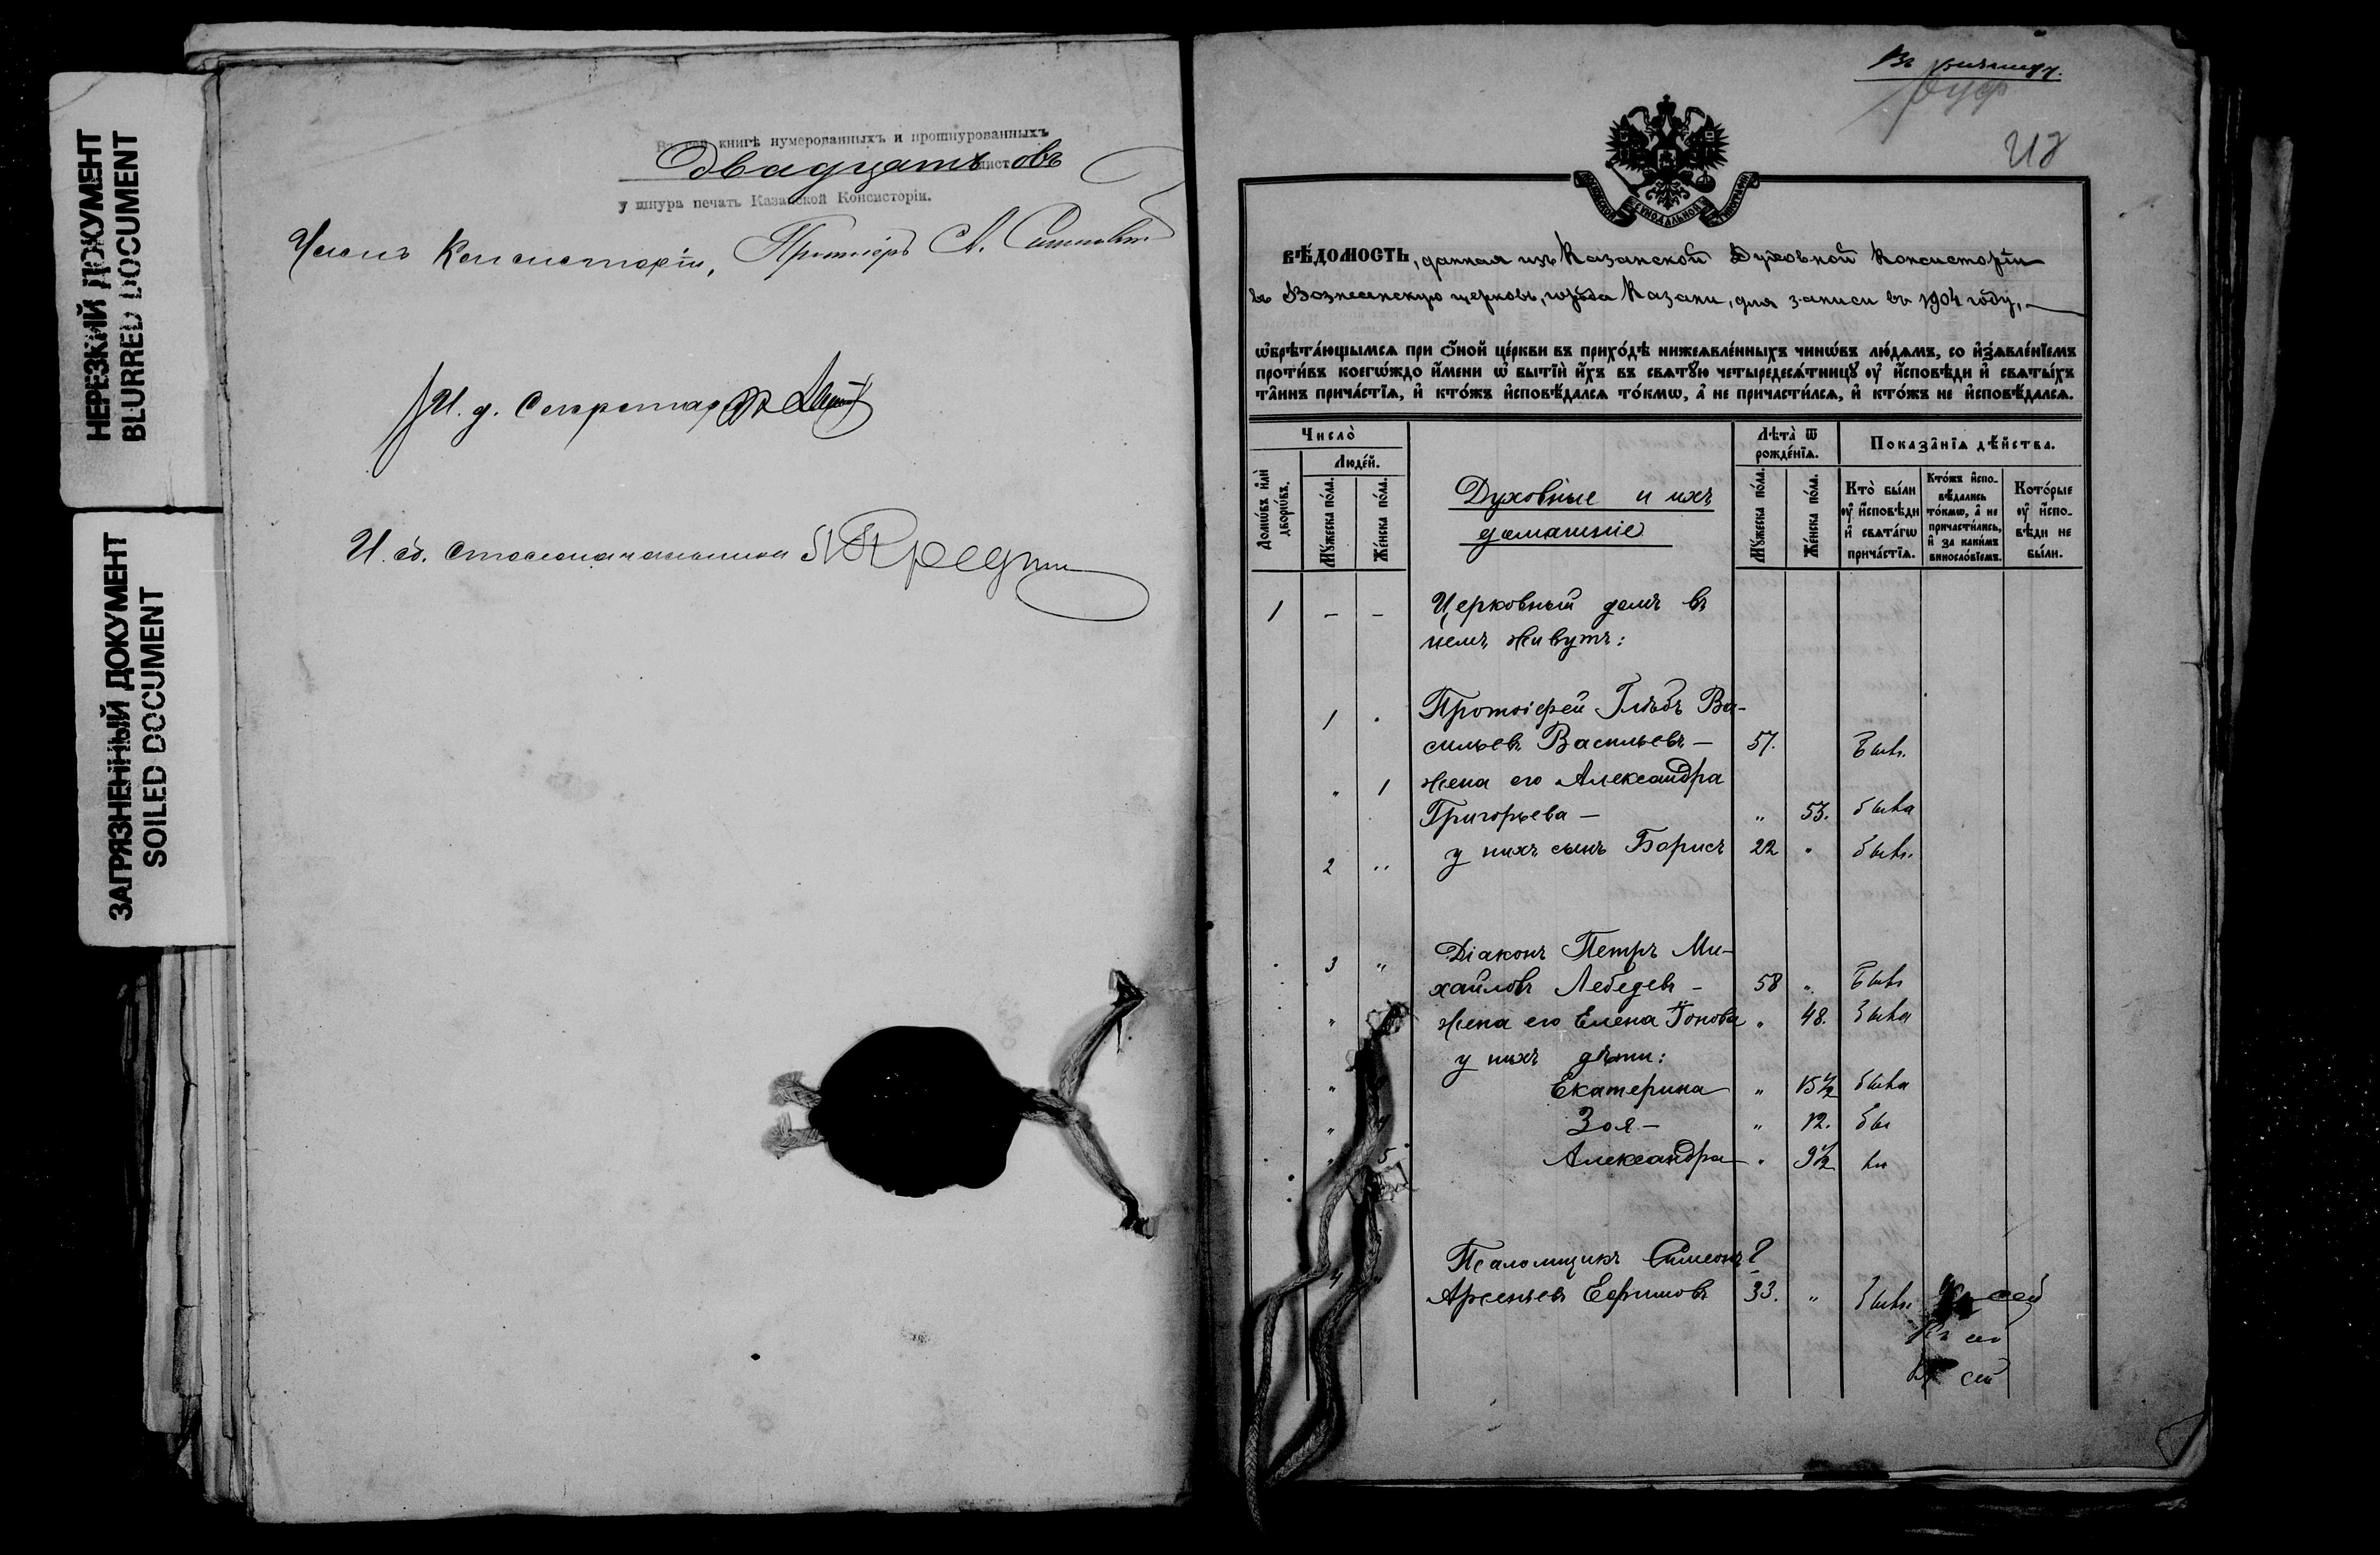 НЕРЕЗКИЙ ДОКУМЕНТ
BLURRED DOCUMENT
ЗАГРЯЗНЕННЫЙ ДОКУМЕНТ
SOILED DOCUMENT
Въ сей книгѣ нумерованныхъ и прошнурованныхъ
Двадцать листовъ
у шнура печать Казанской Консисторіи.
Членъ Консисторіи, Протоіерей А.
И. д. Секретаря
И. об. Столоначальника
ВѢ́ДОМОСТЬ, данная изъ Казанской Духовной Консисторіи
въ Вознесенскую церковь, города Казани, для записи въ 1904 году,
ѡ҆брѣта́ющымсѧ при ѻ҆́ной це́ркви въ прихо́дѣ нижеѧвле́нныхъ чинѡ́въ лю́дѧмъ, со и҆з̾ѧвле́нїемъ
проти́въ коегѡ́ждо и҆́мени ѡ҆ бытїѝ и҆́хъ въ свѧтꙋ́ю четыредесѧ́тницꙋ ᲂу҆ и҆́сповѣди и҆ свѧты́хъ
та̑инъ прича́стїѧ, и҆ кто́жъ и҆сповѣ́далсѧ то́кмѡ, а҆ не причасти́лсѧ, и҆ кто́жъ не и҆сповѣ́далсѧ.
Число̀
Люде́й.
Домѡ́въ и҆лѝ дворѡ́въ.
Мꙋ́жеска по́ла.
Же́нска по́ла.
Духовные и ихъ
домашніе
Лѣта̀ ѿ
рожде́нїѧ.
Мꙋ́жеска по́ла.
Же́нска по́ла.
Показа̑нїѧ дѣ́йства.
Кто̀ бы́ли
ᲂу҆ и҆́сповѣди
и҆ свѧта́гѡ
прича́стїѧ.
Кто́жъ и҆спо-
вѣ́дались
то́кмѡ, а҆ не
причасти́лись,
и҆ за каки́мъ
винослѡ́вїемъ.
Кото́рые
ᲂу҆ и҆́спо-
вѣди не
бы́ли.
1 – – Церковный домъ въ
немъ живутъ:
1 Протоіерей Глѣбъ Ва-
сильевъ Васильевъ – 57. Былъ.
" 1 жена его Александра
Григорьева – " 53. была
2 " у нихъ сынъ Борисъ 22 " былъ.
3 " Діаконъ Петръ Ми-
хайловъ Лебедевъ – 58 " Былъ
" жена его Елена Іонова " 48. была
у нихъ дѣти:
" Екатерина " 15½ была
" Зоя – " 12. бы
5 Александра " 9½ ли
4 Псаломщикъ Симеонъ ?
Арсеньевъ Ефимовъ 33. " былъ
сей
сей